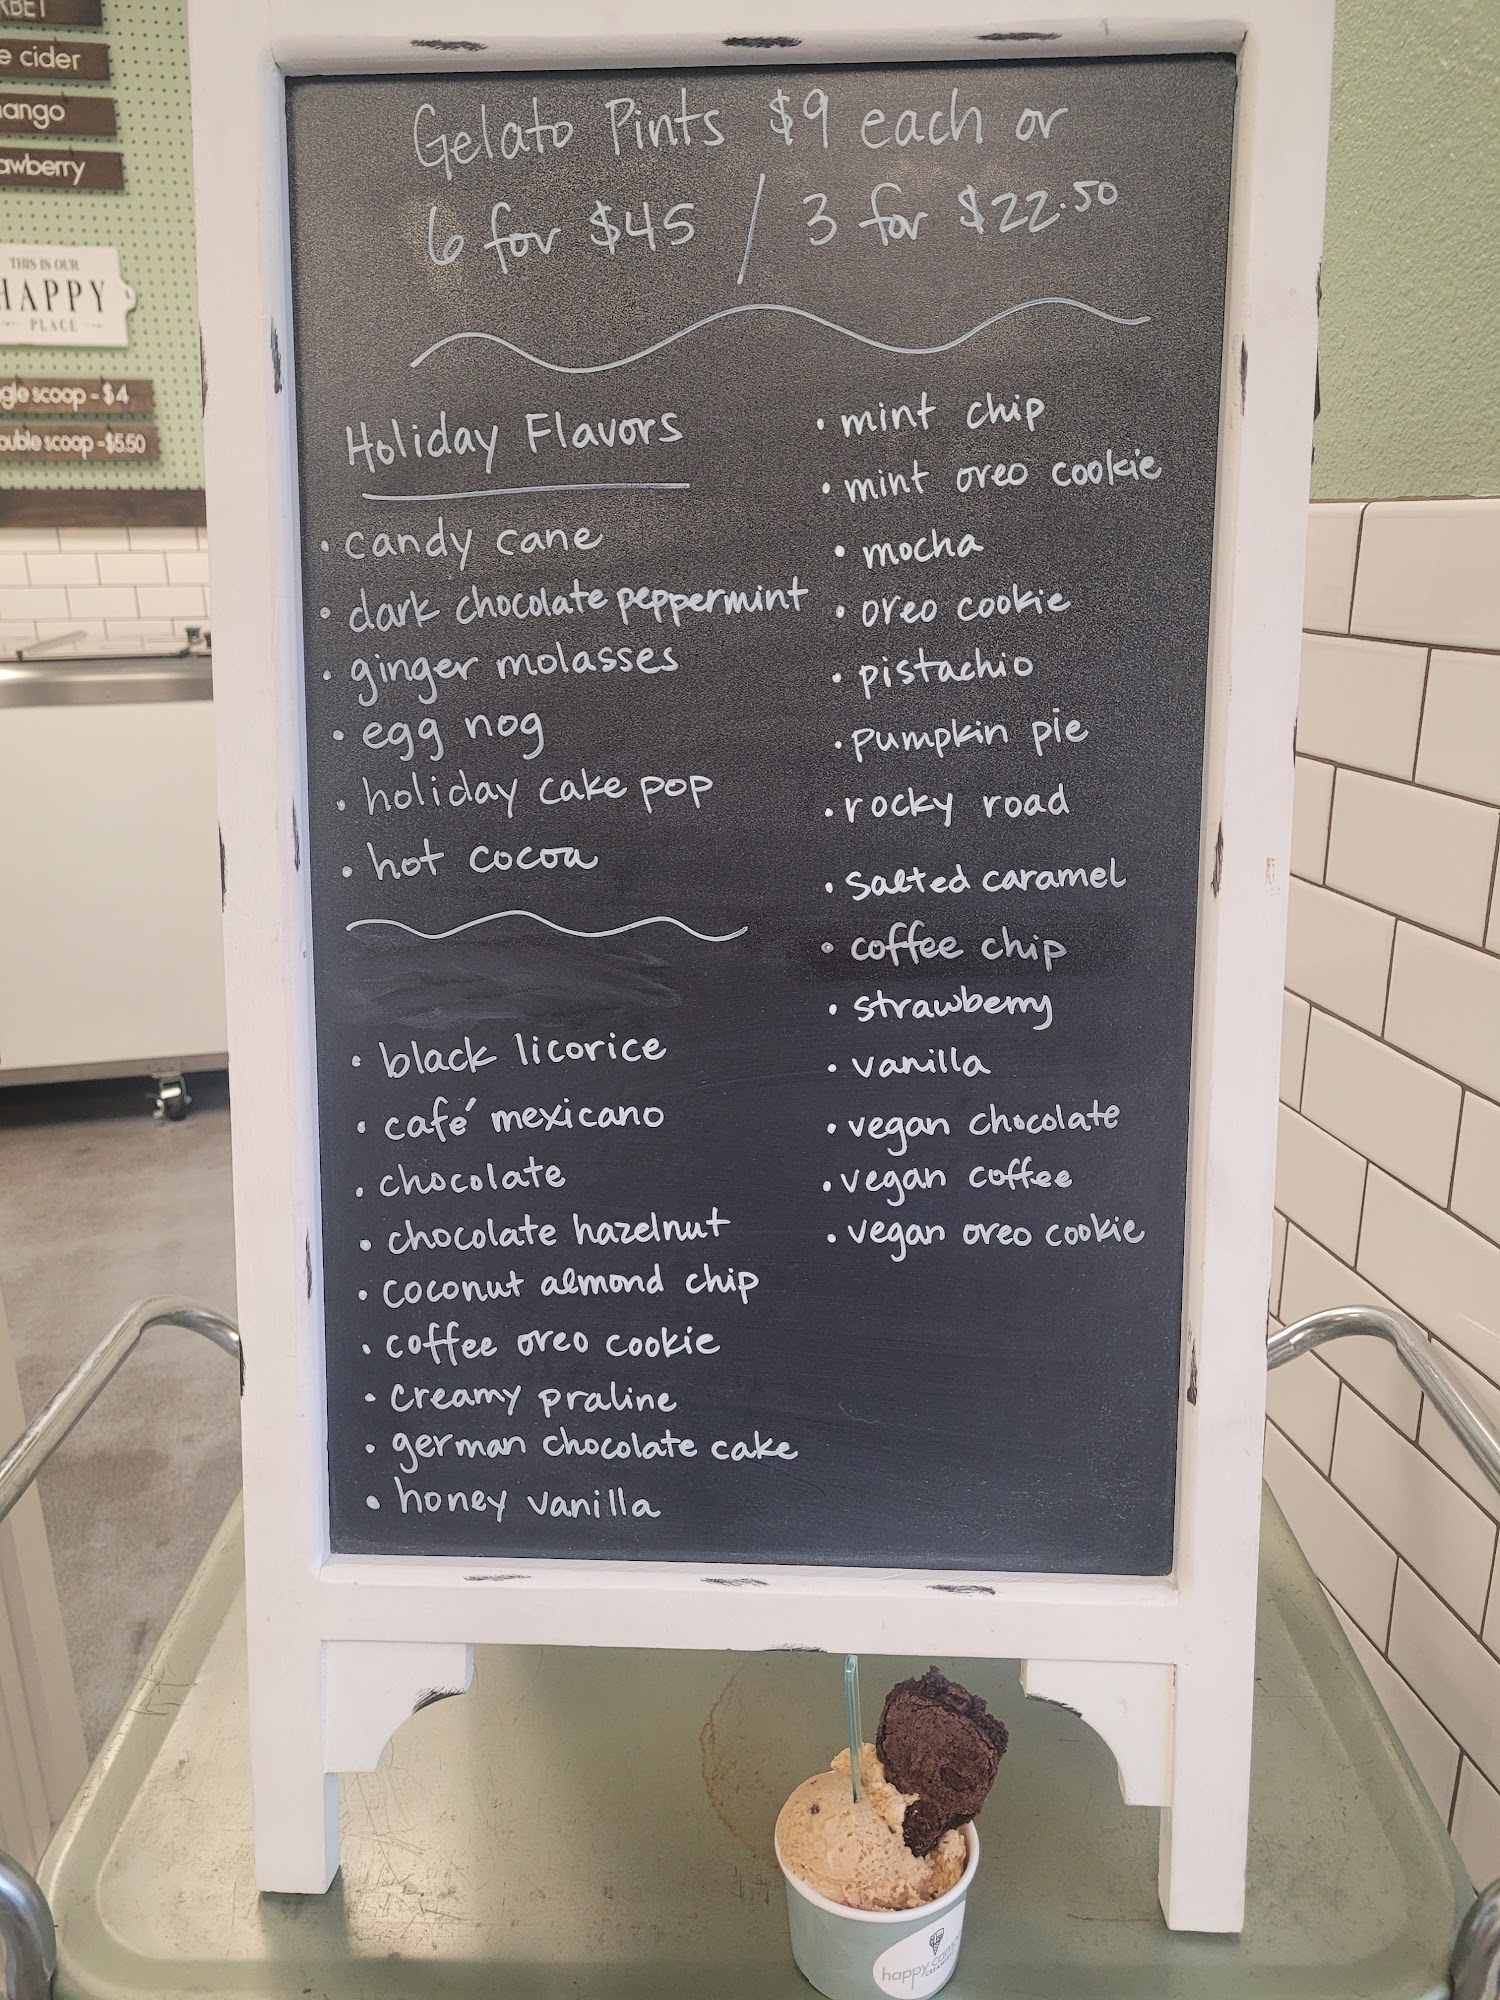 e cider
awberry
THIS IS OUR
HAPPY
PLACE
scoop - $4
scoop - $5.50
Gelato Pints $9 each or
6 for $45 / 3 for $22.50
Holiday Flavors
• candy cane
• dark chocolate peppermint
• ginger molasses
• egg nog
• holiday cake pop
• hot cocoa
• black licorice
• café mexicano
• chocolate
• chocolate hazelnut
• coconut almond chip
• coffee oreo cookie
• creamy praline
• german chocolate cake
• honey vanilla
• mint chip
• mint oreo cookie
• mocha
• oreo cookie
• pistachio
• pumpkin pie
• rocky road
• salted caramel
• coffee chip
• strawberry
• vanilla
• vegan chocolate
• vegan coffee
• vegan oreo cookie
happy